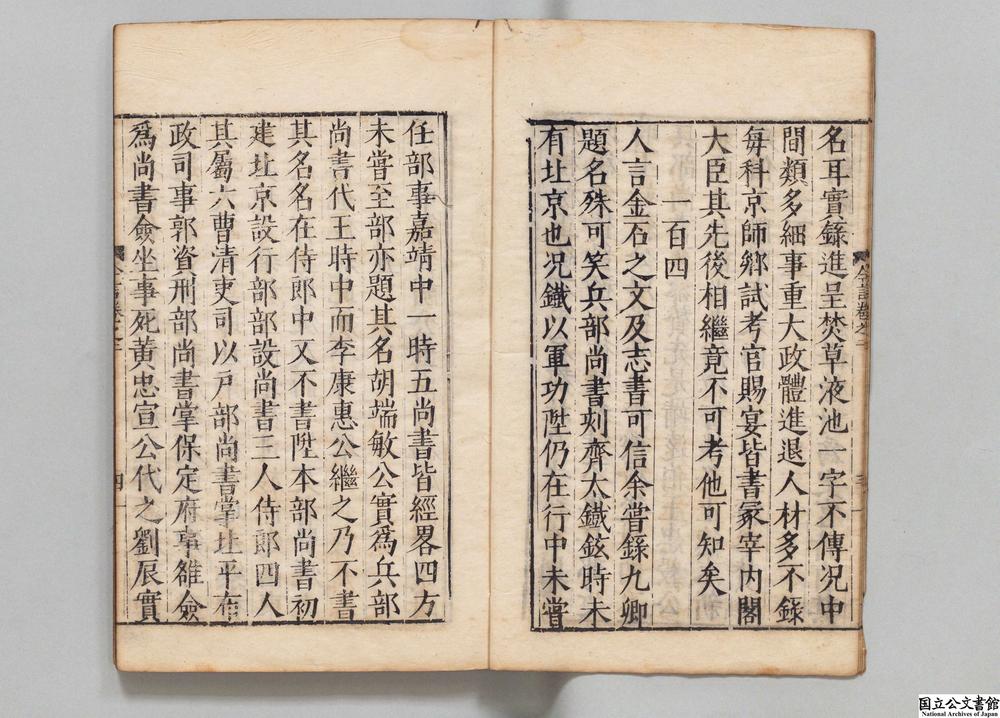 名耳實錄進呈焚草液池一字不傳况中
間類多細事重大政體進退人材多不錄
每科京師鄉試考官賜宴皆書冡宰内閣
大臣其先後相繼竟不可考他可知矣
一百四
人言金石之文及志書可信余嘗錄九卿
題名殊可笑兵部尚書刻齊太鐵鉉時未
有北京也况鐵以軍功陞仍在行中未嘗
任部事嘉靖中一時五尚書皆經畧四方
未嘗至部亦題其名胡端敏公實爲兵部
尚書代王時中而李康惠公繼之乃不書
其名名在侍郎中又不書陞本部尚書初
建北京設行部部設尚書三人侍郎四人
其屬六曹清吏司以戶部尚書掌北平布
政司事郭資刑部尚書掌保定府事雒僉
爲尚書僉坐事死黄忠宣公代之劉辰實
今言卷之二
三
四
国立公文書館
National Archives of Japan